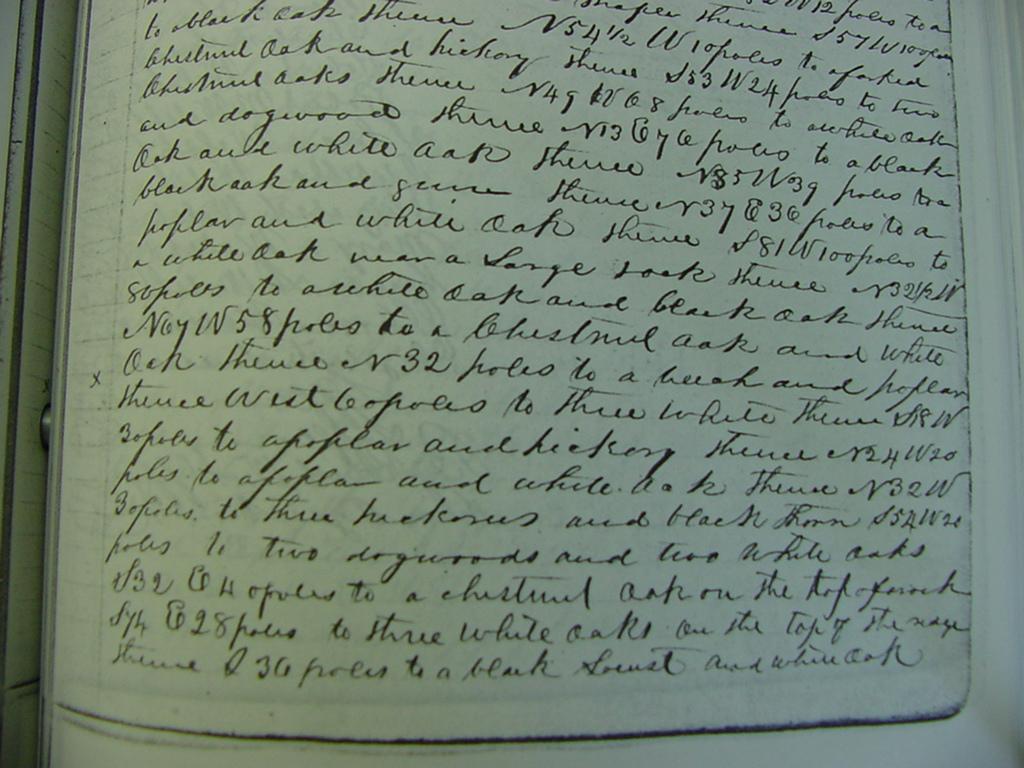 W 12 poles to a
to black oak thence thence S 57 W 100 poles
Chestnut Oak and hickory N 54 1/2 W 10 poles to a forked
Chestnut oaks thence S 53 W 24 poles to two
and dogwood thence N 49 W 68 poles to a white oak
Oak and white oak thence N 13 E 76 poles to a black
black oak and gum thence N 85 W 39 poles to a
poplar and white oak thence N 37 E 36 poles to a
a white oak near a Large rock thence S 81 W 100 poles to
80 poles to a white oak and black oak thence N 32 1/2 W
N 67 W 58 poles to a Chestnut oak and white
Oak thence N 32 poles to a beech and poplar
x thence West 60 poles to three white thence S 18 W
30 poles to a poplar and hickory thence N 24 W 20
poles to a poplar and white oak thence N 32 W
30 poles to three hickories and black thorn S 54 W 20
poles to two dogwoods and two white oaks
S 32 E 40 poles to a chestnut oak on the top of a rock
S 74 E 28 poles to three white oaks on the top of the
thence S 36 poles to a black Locust and white oak